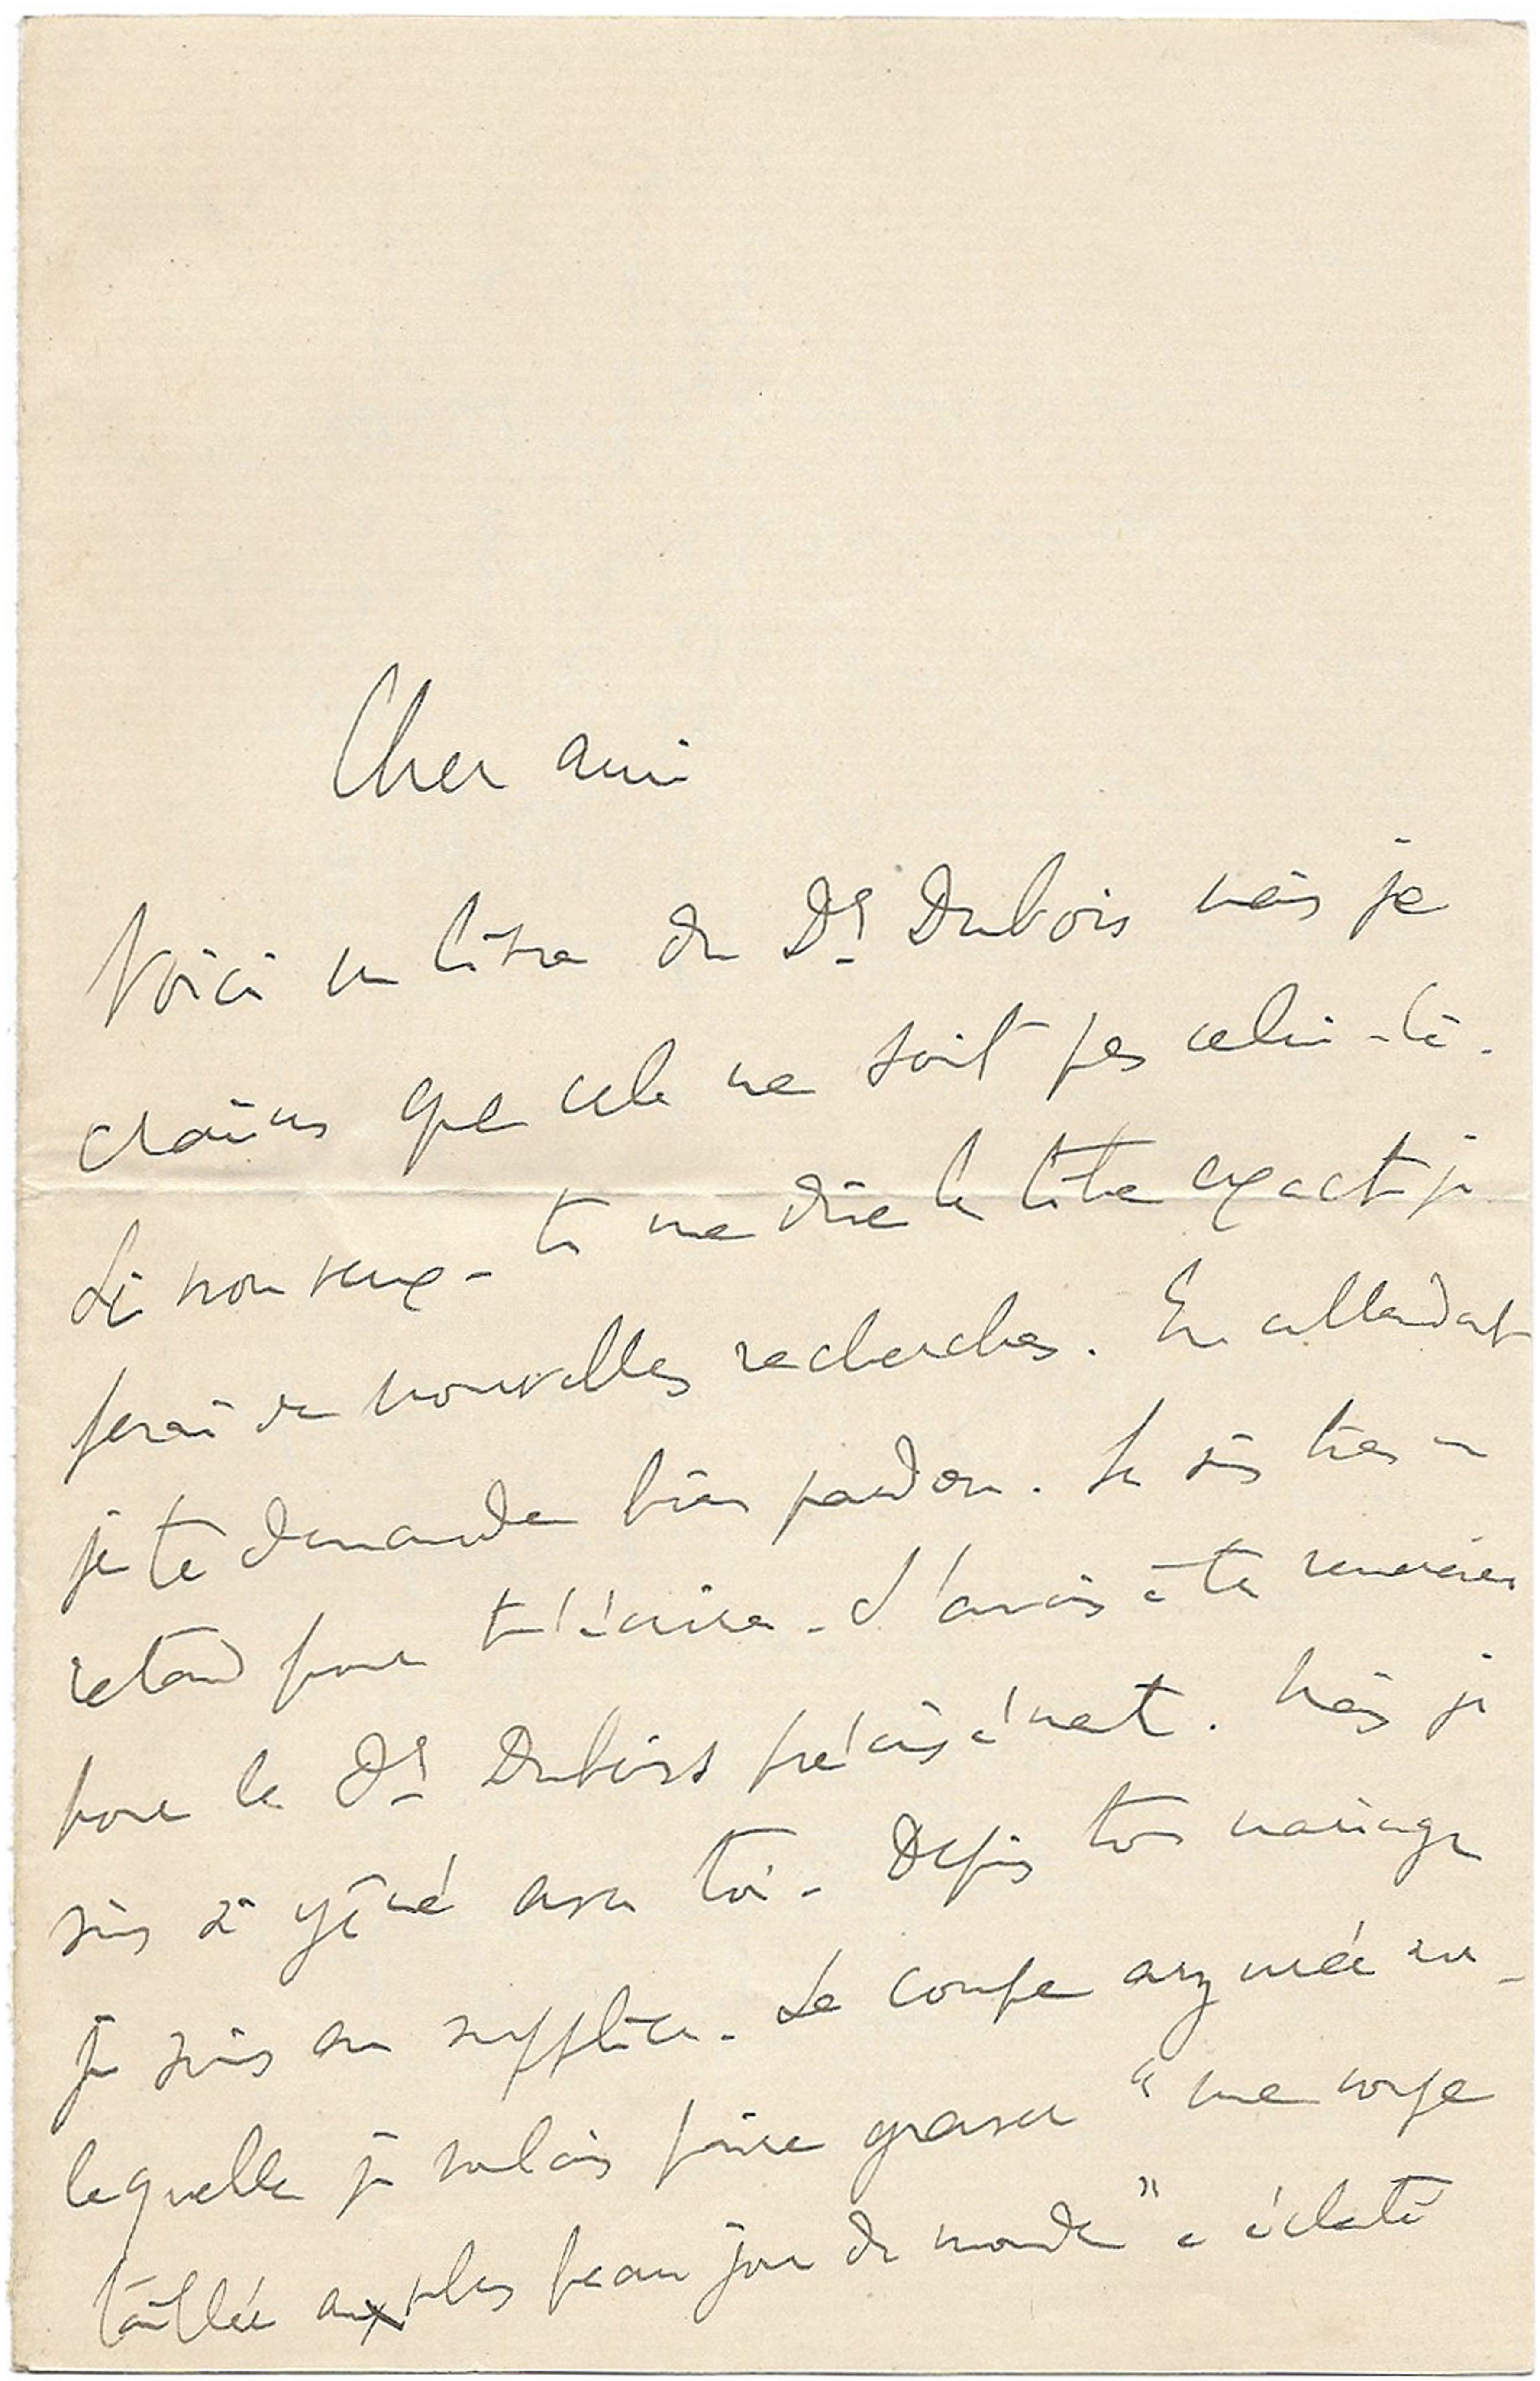 Cher ami
Voici un livre du Dr Dubois mais je
crains que cela ne soit pas celui-là.
Si non veux-tu me dire le titre exact je
ferai de nouvelles recherches. En attendant
je te demande bien pardon. Je suis très en
retard pour t'écrire. J'avais à te remercier
pour le Dr Dubois précisément. Mais je
suis si gêné avec toi. Depuis ton mariage
je suis au supplice. La coupe argyrée sur
laquelle je voulais faire graver "une coupe
taillée aux plus beau jour du monde" a éclaté